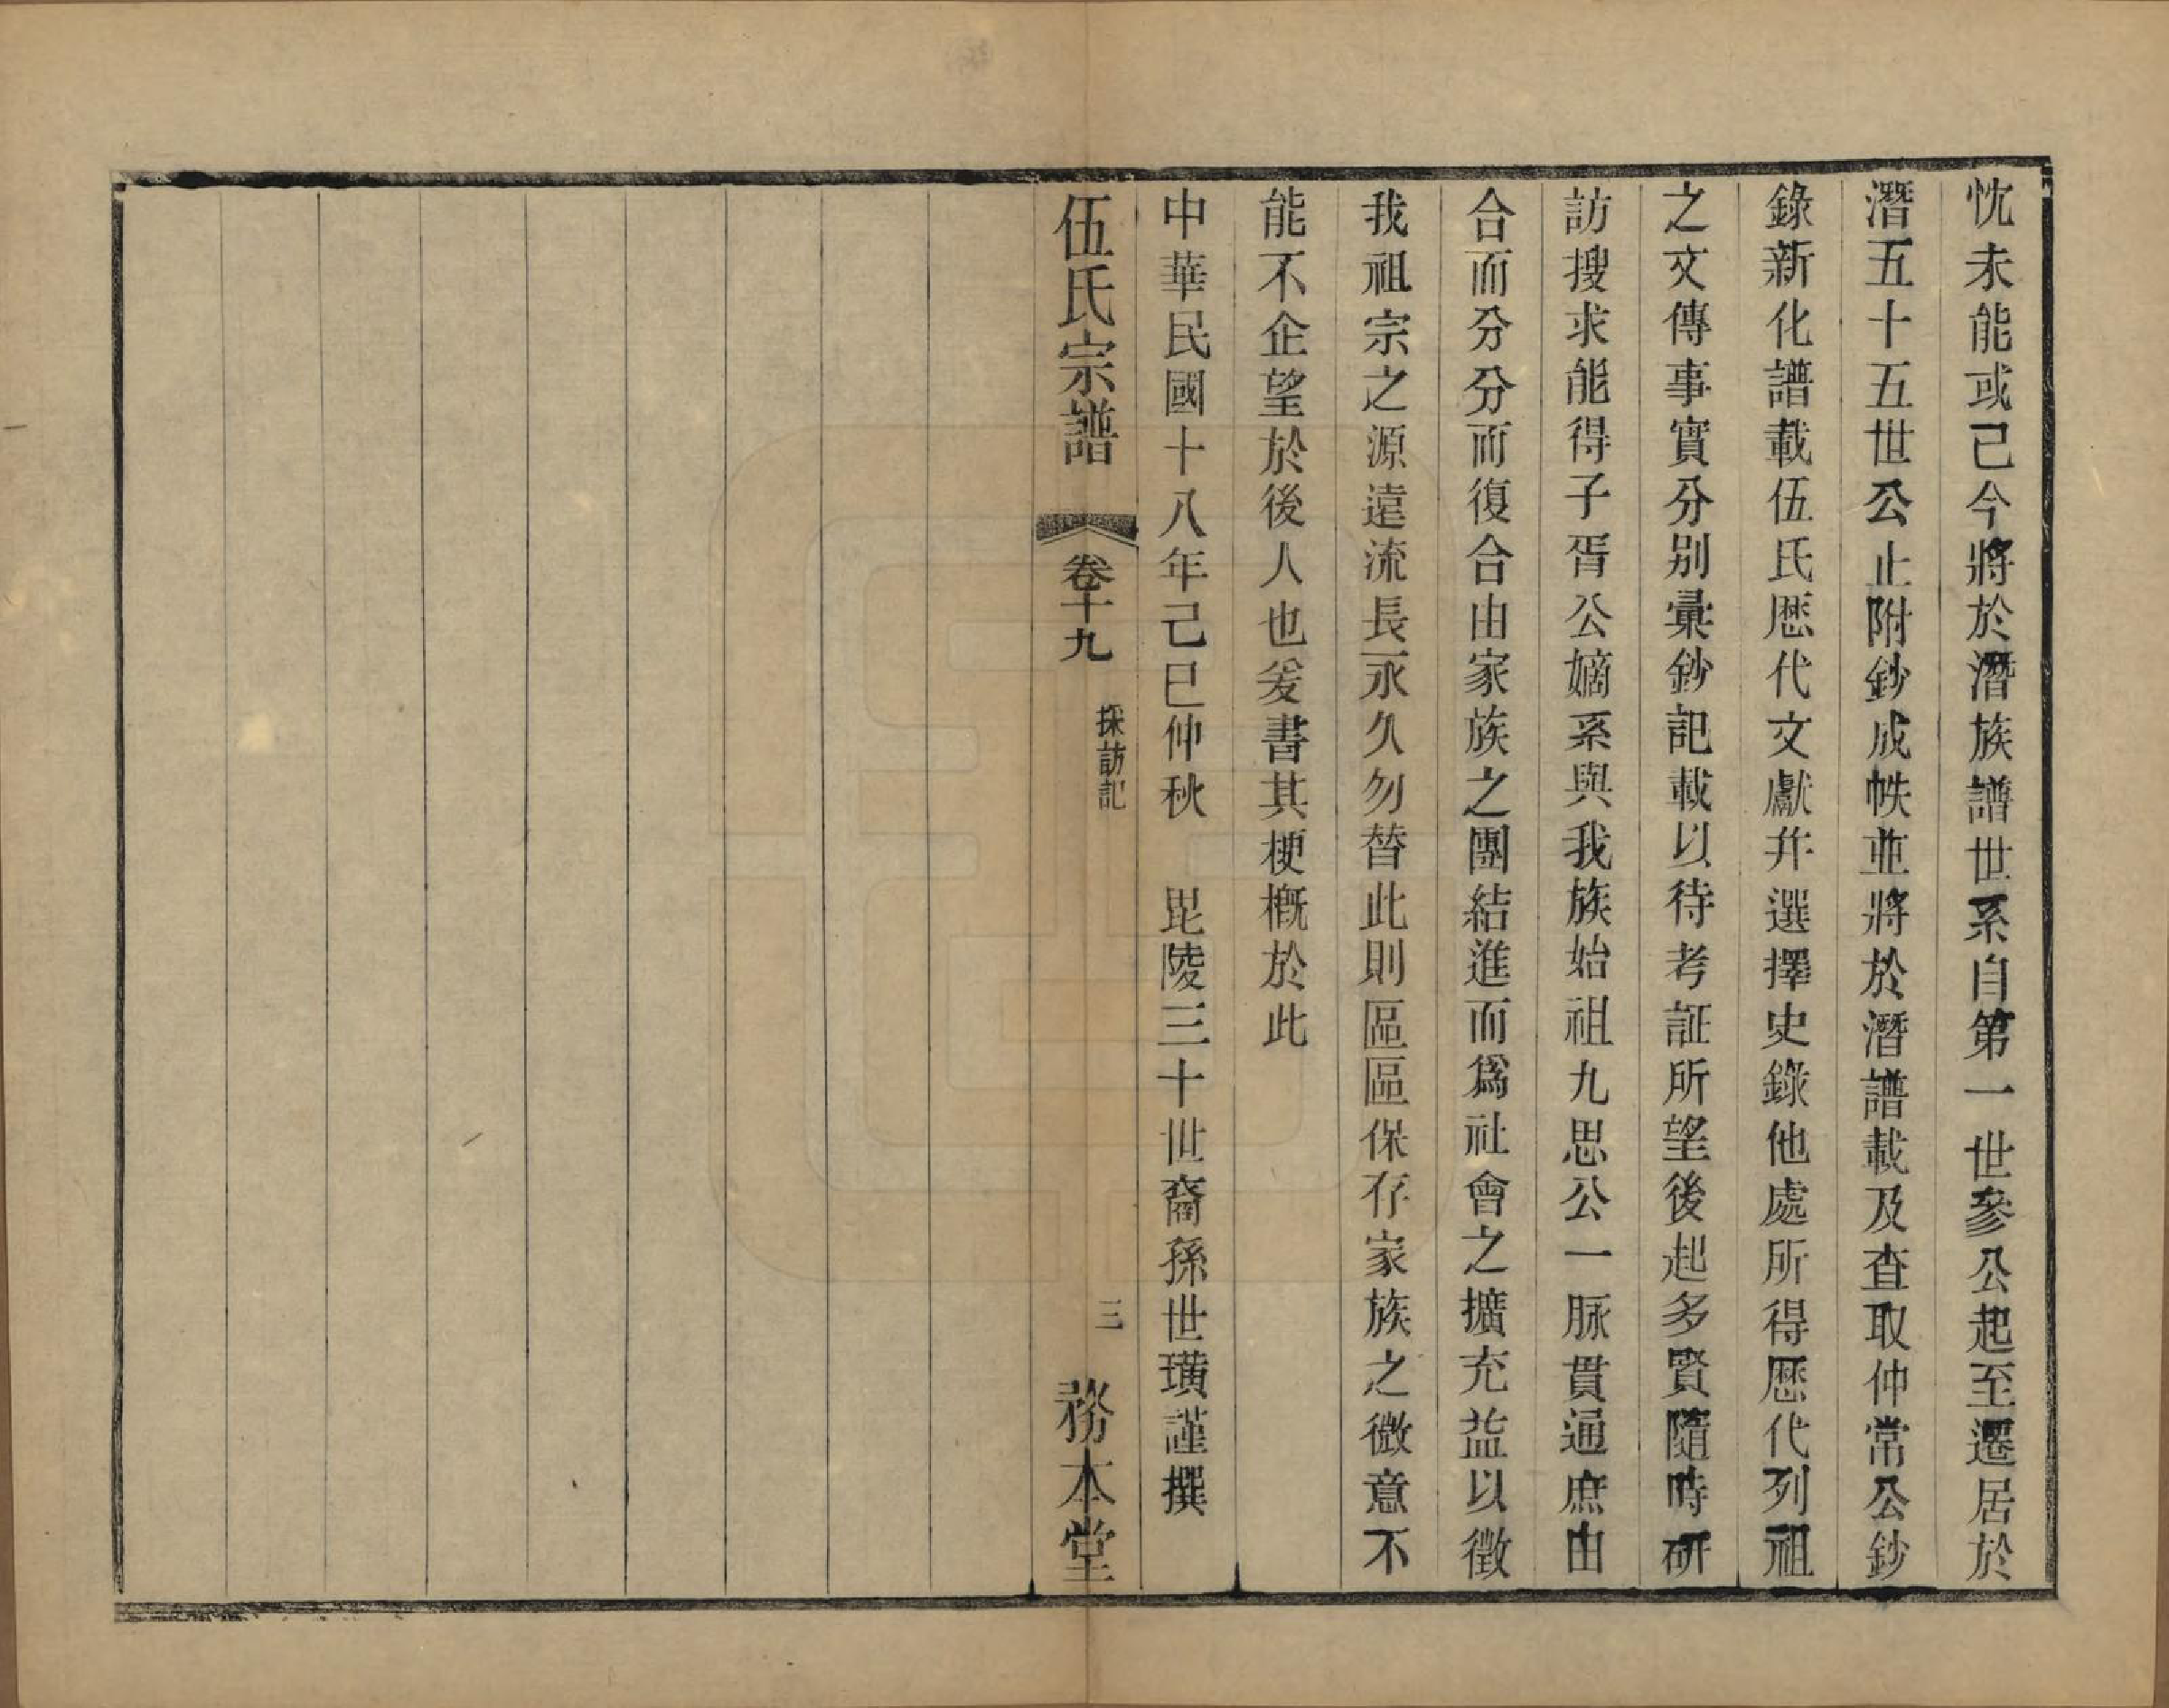 忱未能或已今將於潛族譜世系自第一世參公起至遷居於
潛五十五世公止附鈔成帙並將於潛譜載及查取仲常公鈔
錄新化譜載伍氏歷代文獻幷選擇史錄他處所得歷代列祖
之文傳事實分别彙鈔記載以待考証所望後起多賢隨時研
訪搜求能得子胥公嫡系與我族始祖九思公一脉貫通庶由
合而分分而復合由家族之團結進而爲社會之擴充益以徵
我祖宗之源遠流長永久勿替此則區區保存家族之微意不
能不企望於後人也爰書其梗概於此
中華民國十八年己巳仲秋　毘陵三十世裔孫世璜謹撰
伍氏宗譜　卷十九　採訪記　三　務本堂